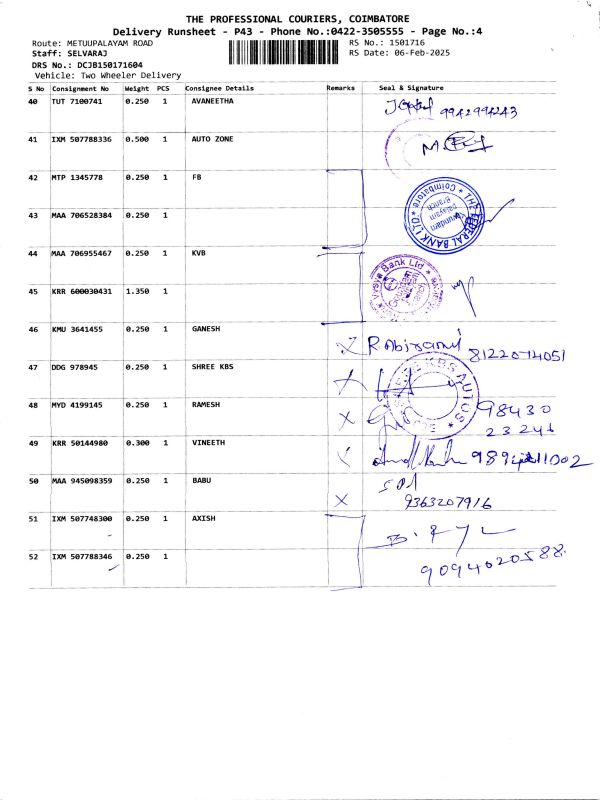 THE PROFESSIONAL COURIERS, COIMBATORE
Delivery Runsheet - P43 - Phone No.:0422-3505555 - Page No.:4
Route: METUUPALAYAM ROAD RS No.: 1501716
Staff: SELVARAJ RS Date: 06-Feb-2025
DRS No.: DCJB150171604
Vehicle: Two Wheeler Delivery
S No Consignment No Weight PCS Consignee Details Remarks Seal & Signature
40 TUT 7100741 0.250 1 AVANEETHA 9942994243
41 IXM 507788336 0.500 1 AUTO ZONE
42 MTP 1345778 0.250 1 FB
43 MAA 706528384 0.250 1
THE FEDERAL BANK LTD * Coimbatore *
Branch
44 MAA 706955467 0.250 1 KVB
Vysya Bank Ltd
45 KRR 600030431 1.350 1
46 KMU 3641455 0.250 1 GANESH R Abirami 8122074051
47 DDG 978945 0.250 1 SHREE KBS
SHREE KBS AUTOS
48 MYD 4199145 0.250 1 RAMESH 98430
23246
49 KRR 50144980 0.300 1 VINEETH
50 MAA 945098359 0.250 1 BABU
9363207916
51 IXM 507748300 0.250 1 AXISH
52 IXM 507788346 0.250 1 9094020588